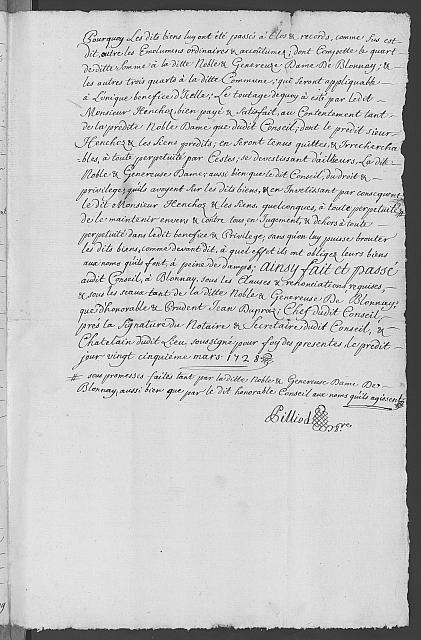 Pourquoy Les dits biens luy ont été passés à Clos & records, comme sus est
dit, outre les Emolumens ordinaires & accoûtumez; dont Compette le quart
de ditte somme à la ditte Noble & Genereuse Dame De Blonnay; &
les autres trois quarts à la ditte Commune; qui seront appliquable
à L'unique benefice d'Icelle; Le toutage dequoy à eté par ledit
Monsieur Henchoz, bien payé & satisfait, au Contentement tant
de la prédite Noble Dame que dudit Conseil; dont le prédit sieur
Henchoz & les siens prédits, en seront tenus quittes & Irrechercha-
bles, à toute perpetuité par Cestes; se devestissant d'ailleurs La dite
Noble & Genereuse Dame; aussi bien que ledit Conseil, du droit &
privilege, quils avoyent sur les dits biens, & en Investissant par consequent
le dit Monsieur Henchoz & les siens quelconques, à toute perpetuité
de le maintenir envers & contre tous en Jugement, & dehors à toute
perpetuité dans ledit benefice & Privilege; sans qu'on luy puisse brouter
les dits biens, comme devant dit, à quel effet ils ont obligez leurs biens
aux noms quils font, à peine de damps; ainsy fait et passé
audit Conseil, à Blonnay, sous les Clauses & renonciations requises,
& sous les seaux tant de la ditte Noble & Genereuse De Blonnay;
que d'honorable & Prudent Jean Dupraz; Chef dudit Conseil,
prés la Signature du Notaire & Secretaire dudit Conseil, &
Chatelain dudit Lieu, soussigné pour foy des presentes, le prédit
jour vingt cinquième mars 1728
# sous promesses faites tant par laditte Noble & Genereuse Dame De
Blonnay, aussi bien que par le dit honorable Conseil aux noms quils agissent
Pilliod